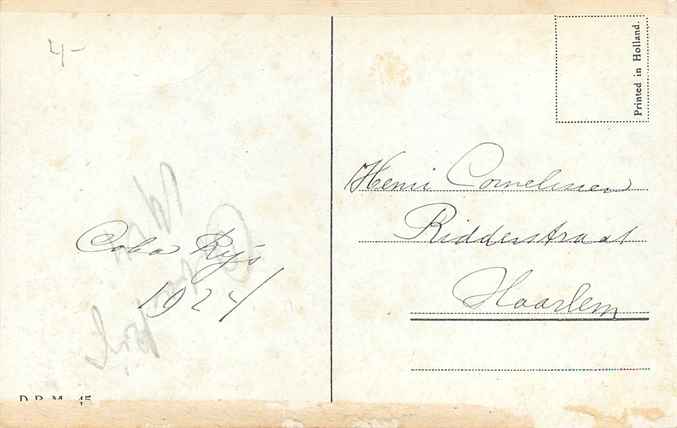 4-
Coba Rijs
1924
Printed in Holland.
Henri Cornelissen
Ridderstraat
Haarlem